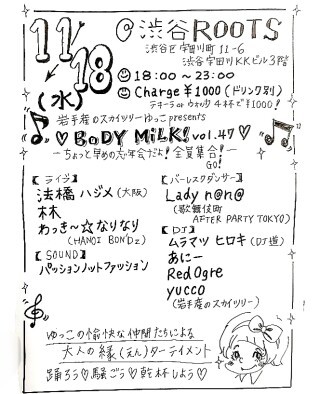 11/18
(水)
@渋谷ROOTS
渋谷区宇田川町11-6
渋谷宇田川KKビル3階
18:00〜23:00
Charge ¥1000(ドリンク別)
テキーラ or ウォッカ 4杯で¥1000!
岩手産のスカイツリーゆっこ presents
♡BoDY MiLK! vol.47♡
―ちょっと早めの忘年会だよ!全員集合!―
GO!
【ライブ】
法橋ハジメ(大阪)
林
わっき〜☆なりなり
(HANOI BON'Dz)
【SOUND】
パッションノットファッション
【バーレスクダンサー】
Lady n@n@
(歌舞伎町
AFTER PARTY TOKYO)
【DJ】
ムラマツ ヒロキ(DJ道)
あにー
Red Ogre
yucco
(岩手産のスカイツリー)
ゆっこの愉快な仲間たちによる
大人の縁(えん)ターテイメント
踊ろう♡騒ごう♡乾杯しよう♡